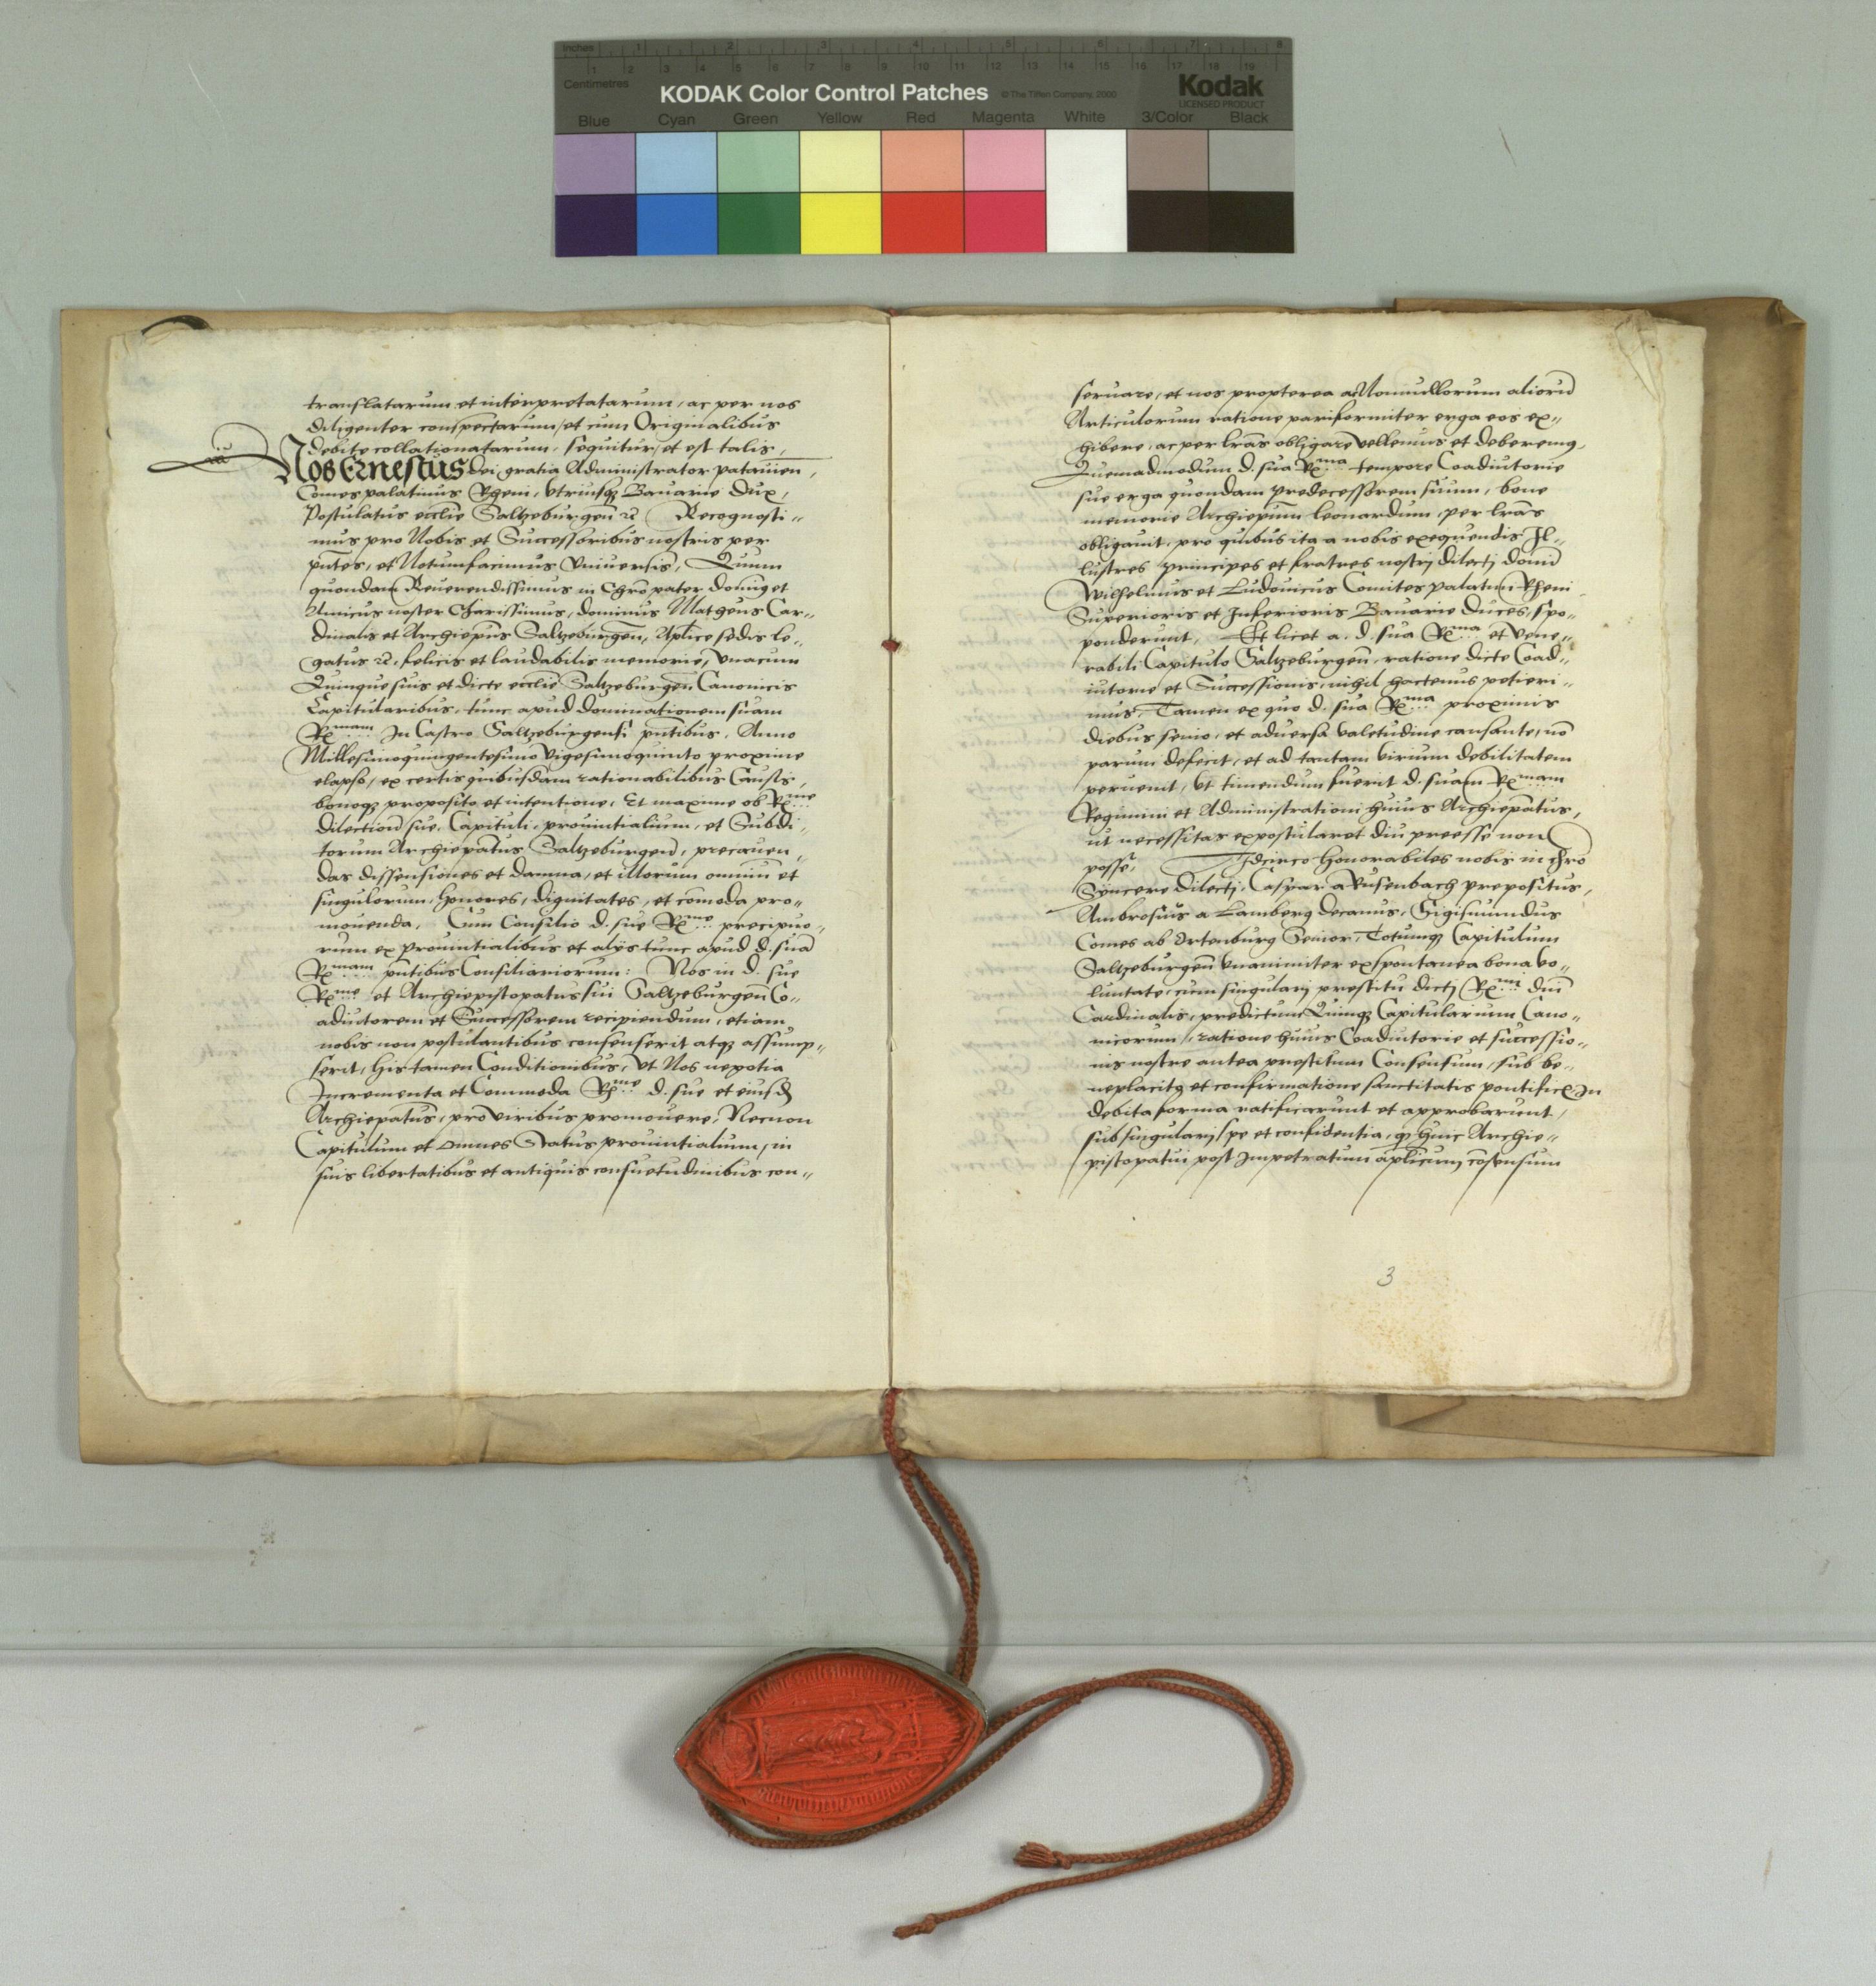 Inches 1 2 3 4 5 6 7 8
Centimetres 1 2 3 4 5 6 7 8 9 10 11 12 13 14 15 16 17 18 19
KODAK Color Control Patches © The Tiffen Company, 2000 Kodak
LICENSED PRODUCT
Blue Cyan Green Yellow Red Magenta White 3/Color Black
translatarum et interpretatarum, ac per nos
diligenter conspectarum, et cum Originalibus
debite collationatarum, sequitur, et est talis,
Nos Ernestus Dei gratia Administrator patauien,
Comes palatinus Rheni, vtriusq Bauarie Dux,
Postulatus ecclie Saltzeburgen̄ ꝛc Recognosci„
mus pro Nobis et Successoribus nostris per
pn̄tes, et Notumfacimus Vniuersis, Quum
quondam Reuerendissimus in Chr̄o pater dominꝰ et
Amicus noster Charissimus, dominus Matheus Car„
dinalis et Archiepus Saltzeburgen̄, Aplice sedis le„
gatus ꝛc, felicis et laudabilis memorie, vnacum
Quinque suis et dicte ecclie Saltzeburgen̄ Canonicis
Capitularibus, tunc apud dominationem suam
Rᵐᵃᵐ In Castro Saltzeburgensi pn̄tibus, Anno
Millesimoquingentesimo vigesimoquinto proxime
elapso, ex certis quibusdam rationabilibus Causis,
bonoq proposito et intentione, Et maxime ob Rᵐᵉ
dilectionē sue, Capituli, prouintialium, et Subdi„
torum Archiepatus Saltzeburgen̄, precauen„
das dissensiones et damna, et illorum omniū et
singulorum, honores, dignitates, et comoda pro„
mouenda, Cum Consilio d. sue Rᵐᵉ precipuo„
rum ex prouintialibus et alijs tunc apud d. suā
Rᵐᵃᵐ pn̄tibus Consiliariorum: Nos in d. sue
Rᵐᵉ et Archiepiscopatus sui Saltzeburgen̄ Co„
adiutorem et Successorem recipiendum, etiam
nobis non postulantibus consenserit atq assump„
serit, his tamen Conditionibus, vt Nos negotia
Incrementa et Commoda Rᵐᵉ d. sue et eiusd
Archiepatus, pro viribus promouere, Necnon
Capitulum et omnes Status prouintialium, in
suis libertatibus et antiquis consuetudinibus con„
seruare, et nos propterea ac Nonnullorum aliorū
Articulorum ratione pariformiter erga eos ex„
hibere, ac per lr̄as obligare vellemus et deberemꝰ,
Quemadmodum d. sua Rᵐᵃ tempore Coadiutorie
sue erga quondam predecessorem suum, bone
memorie Archiepum Leonardum, per lr̄as
obligauit, pro quibus ita a nobis exequendis Il„
lustres principes et fratres nostrj dilectj domī
Wilhelmus et Ludouicus Comites palatini Rheni
Superioris et Inferioris Bauarie duces, spo„
ponderunt, Et licet a. d. sua Rᵐᵃ et vene„
rabili Capitulo Saltzeburgen̄, ratione dicte Coad„
iutorie et Successionis, nihil hactenus petieri„
mus, Tamen ex quo d. sua Rᵐᵃ proximis
diebus senio, et aduersa valetudine causante, nō
parum defecit, et ad tantam virium debilitatem
peruenit, vt timendum fuerit d. suam Rᵐᵃᵐ
Regimini et Administrationi huius Archiepatus,
ut necessitas expostularet diu preesse non
posse, Idcirco honorabiles nobis in chr̄o
Syncere dilectj, Caspar a Rusenbach prepositus,
Ambrosius a Lamberg decanus, Sigismundus
Comes ab Ortenburg Senior, Totumq Capitulum
Saltzeburgen̄ vnanimiter ex spontanea bona vo„
luntate, cum singularj prestitū dictj Rᵐⁱ dn̄i
Cardinalis, predictum Quinq Capitularium Cano„
nicorum, ratione huius Coadiutorie et successio„
nis nostre antea prestitum Consensum, sub be„
neplacito et confirmatione sanctitatis pontific In
debita forma ratificarunt et approbarunt,
sub singularj spe et confidentia, q huic Archie„
piscopatui post Impetratum aplicum cōsensum
3